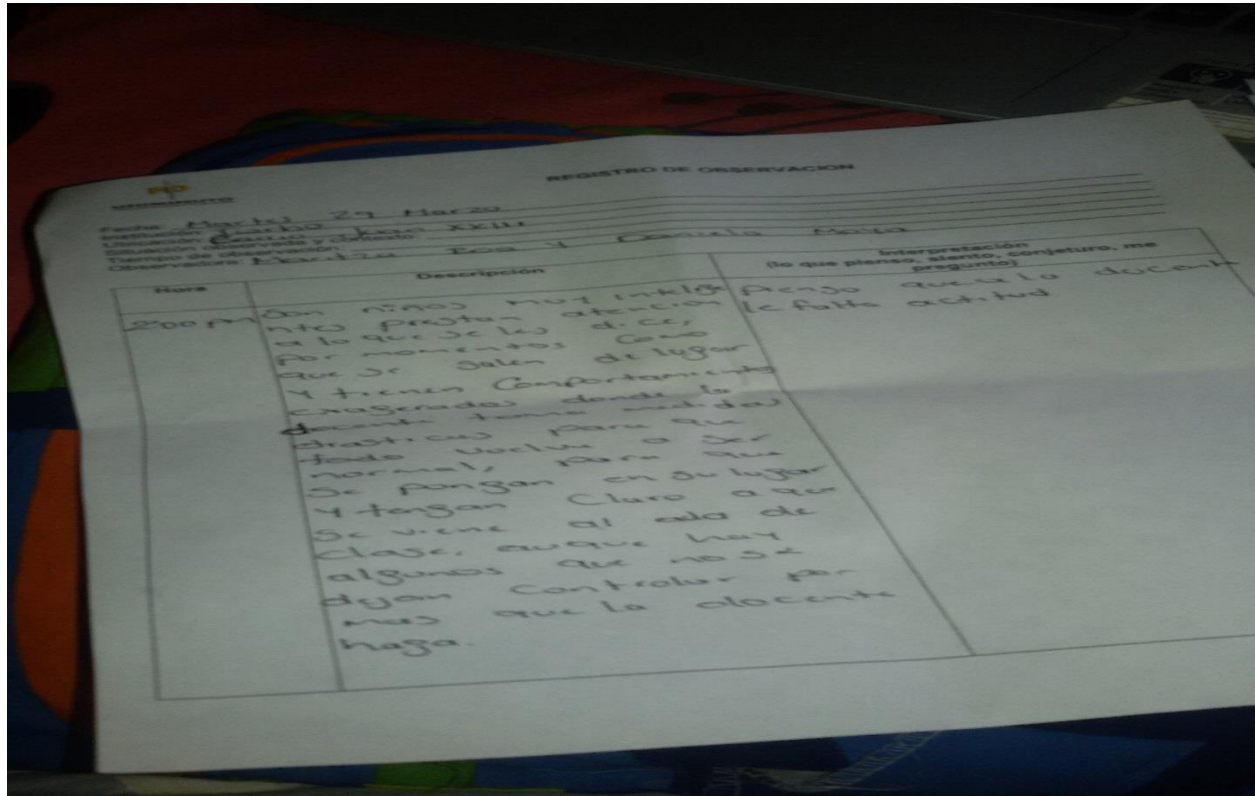 UNIMINUTO
REGISTRO DE OBSERVACION
Fecha: Martes 29 Marzo
Institución:
Ubicación: Juan XXIII
Situación observada y contexto:
Tiempo de observación:
Observadora: Maritza Roa y Daniela Moya
Hora
Descripción
Interpretación
(lo que pienso, siento, conjeturo, me
pregunto)
2:00 pm
Son niños muy intelige
ntes prestan atencion
a lo que se les dice,
por momentos como
que se salen de lugar
y tienen comportamientos
exagerados donde la
docente toma medidas
drasticas para que
todo vuelva a ser
normal, para que
se pongan en su lugar
y tengan claro a que
se viene al aula de
clase, auque hay
algunos que no se
dejan controlar por
mas que la docente
haga.
pienso que a la docente
le falta actitud